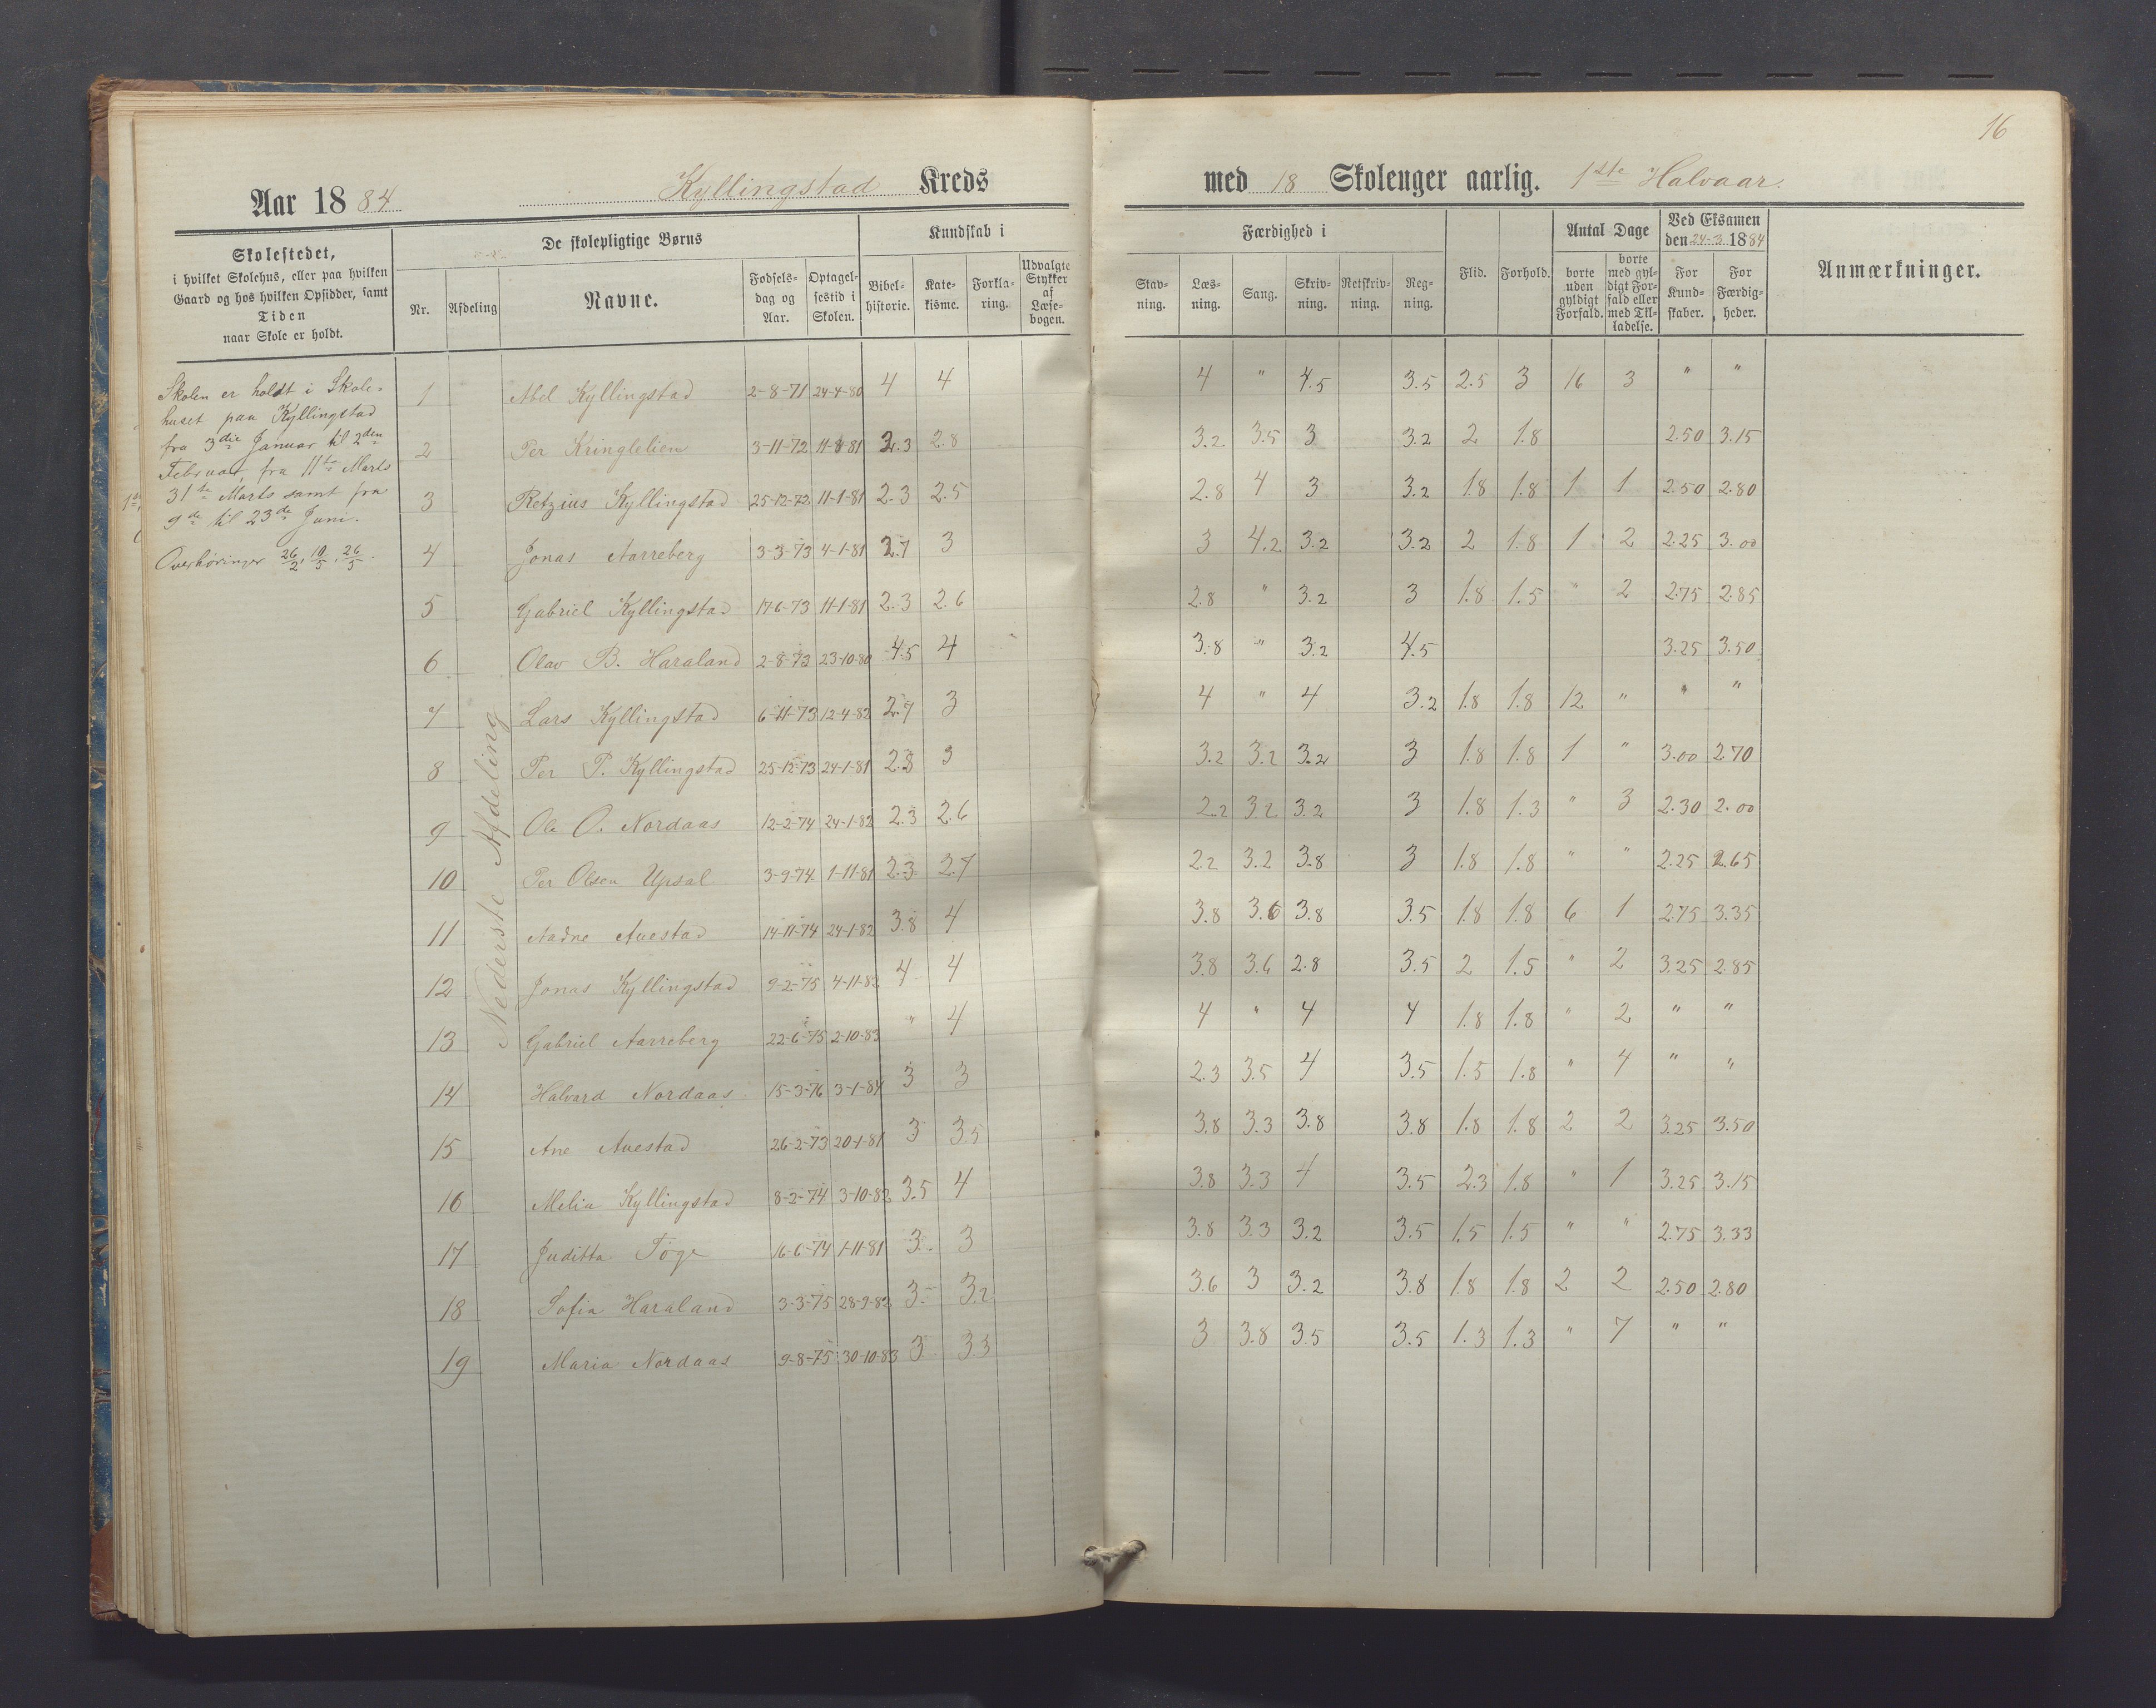 16
Aar 1884 Kyllingstad Kreds med 18 Skoleuger aarlig. 1ste Halvaar.
Skolestedet,
i hvilket Skolehus, eller paa hvilken
Gaard og hos hvilken Opsidder, samt
Tiden
naar Skole er holdt.
De skolepligtige Børns
Nr. Afdeling Navne. Fødselsdag og Aar. Optagelsestid i Skolen.
Kundskab i
Bibelhistorie. Katekisme. Forklaring. Udvalgte Stykker af Læsebogen.
Færdighed i
Stavning. Læsning. Sang. Skrivning. Retskrivning. Regning.
Flid. Forhold.
Antal Dage
borte uden gyldigt Forfald. borte med gyldigt Forfald eller med Tilladelse.
Ved Eksamen
den 24-3 1884
For Kundskaber. For Færdigheder.
Anmærkninger.
Skolen er holdt i Skole-
huset paa Kyllingstad
fra 3die Januar til 2den
Februar, fra 11te Marts
31te Marts samt fra
9de til 23de Juni.
Overhøringer 26/2, 10/5, 26/5.
Nederste Afdeling
1 Abel Kyllingstad 2-8-71 24-4-80 4 4 4 " 4.5 3.5 2.5 3 16 3 " "
2 Per Kringlelien 3-11-72 11-8-81 2.3 2.8 3.2 3.5 3 3.2 2 1.8 2.50 3.15
3 Retzius Kyllingstad 25-12-72 11-1-81 2.3 2.5 2.8 4 3 3.2 1.8 1.8 1 1 2.50 2.80
4 Jonas Aarreberg 3-3-73 4-1-81 2.7 3 3 4.2 3.2 3.2 2 1.8 1 2 2.25 3.00
5 Gabriel Kyllingstad 17-6-73 11-1-81 2.3 2.6 2.8 " 3.2 3 1.8 1.5 " 2 2.75 2.85
6 Olav B. Haraland 2-8-73 23-10-80 4.5 4 3.8 " 3.2 4.5 3.25 3.50
7 Lars Kyllingstad 6-11-73 12-4-82 2.7 3 4 " 4 3.2 1.8 1.8 12 " " "
8 Per P. Kyllingstad 25-12-73 24-1-81 2.8 3 3.2 3.2 3.2 3 1.8 1.8 1 " 3.00 2.70
9 Ole O. Nordaas 12-2-74 24-1-82 2.3 2.6 2.2 3.2 3.2 3 1.8 1.3 " 3 2.30 2.00
10 Per Olsen Upsal 3-9-74 1-11-81 2.3 2.7 2.2 3.2 3.8 3 1.8 1.8 " " 2.25 2.65
11 Aadne Avestad 14-11-74 24-1-82 3.8 4 3.8 3.6 3.8 3.5 1.8 1.8 6 1 2.75 3.35
12 Jonas Kyllingstad 9-2-75 4-11-82 4 4 3.8 3.6 2.8 3.5 2 1.5 " 2 3.25 2.85
13 Gabriel Aarreberg 22-6-75 2-10-83 " 4 4 " 4 4 1.8 1.8 " 2 " "
14 Halvard Nordaas 15-3-76 3-1-84 3 3 2.3 3.5 4 3.5 1.5 1.8 " 4 " "
15 Ane Avestad 26-2-73 20-1-81 3 3.5 3.8 3.3 3.8 3.8 1.8 1.8 2 2 3.25 3.50
16 Melia Kyllingstad 8-2-74 3-10-82 3.5 4 3.8 3.3 4 3.5 2.3 1.8 " 1 3.25 3.15
17 Juditta Töge 16-6-74 1-11-81 3. 3 3.8 3.3 3.2 3.5 1.5 1.5 " " 2.75 3.33
18 Sofia Haraland 3-3-75 28-9-82 3. 3.2 3.6 3 3.2 3.8 1.8 1.8 2 2 2.50 2.80
19 Maria Nordaas 9-8-75 30-10-83 3 3.3 3 3.8 3.5 3.5 1.3 1.3 " 7 " "